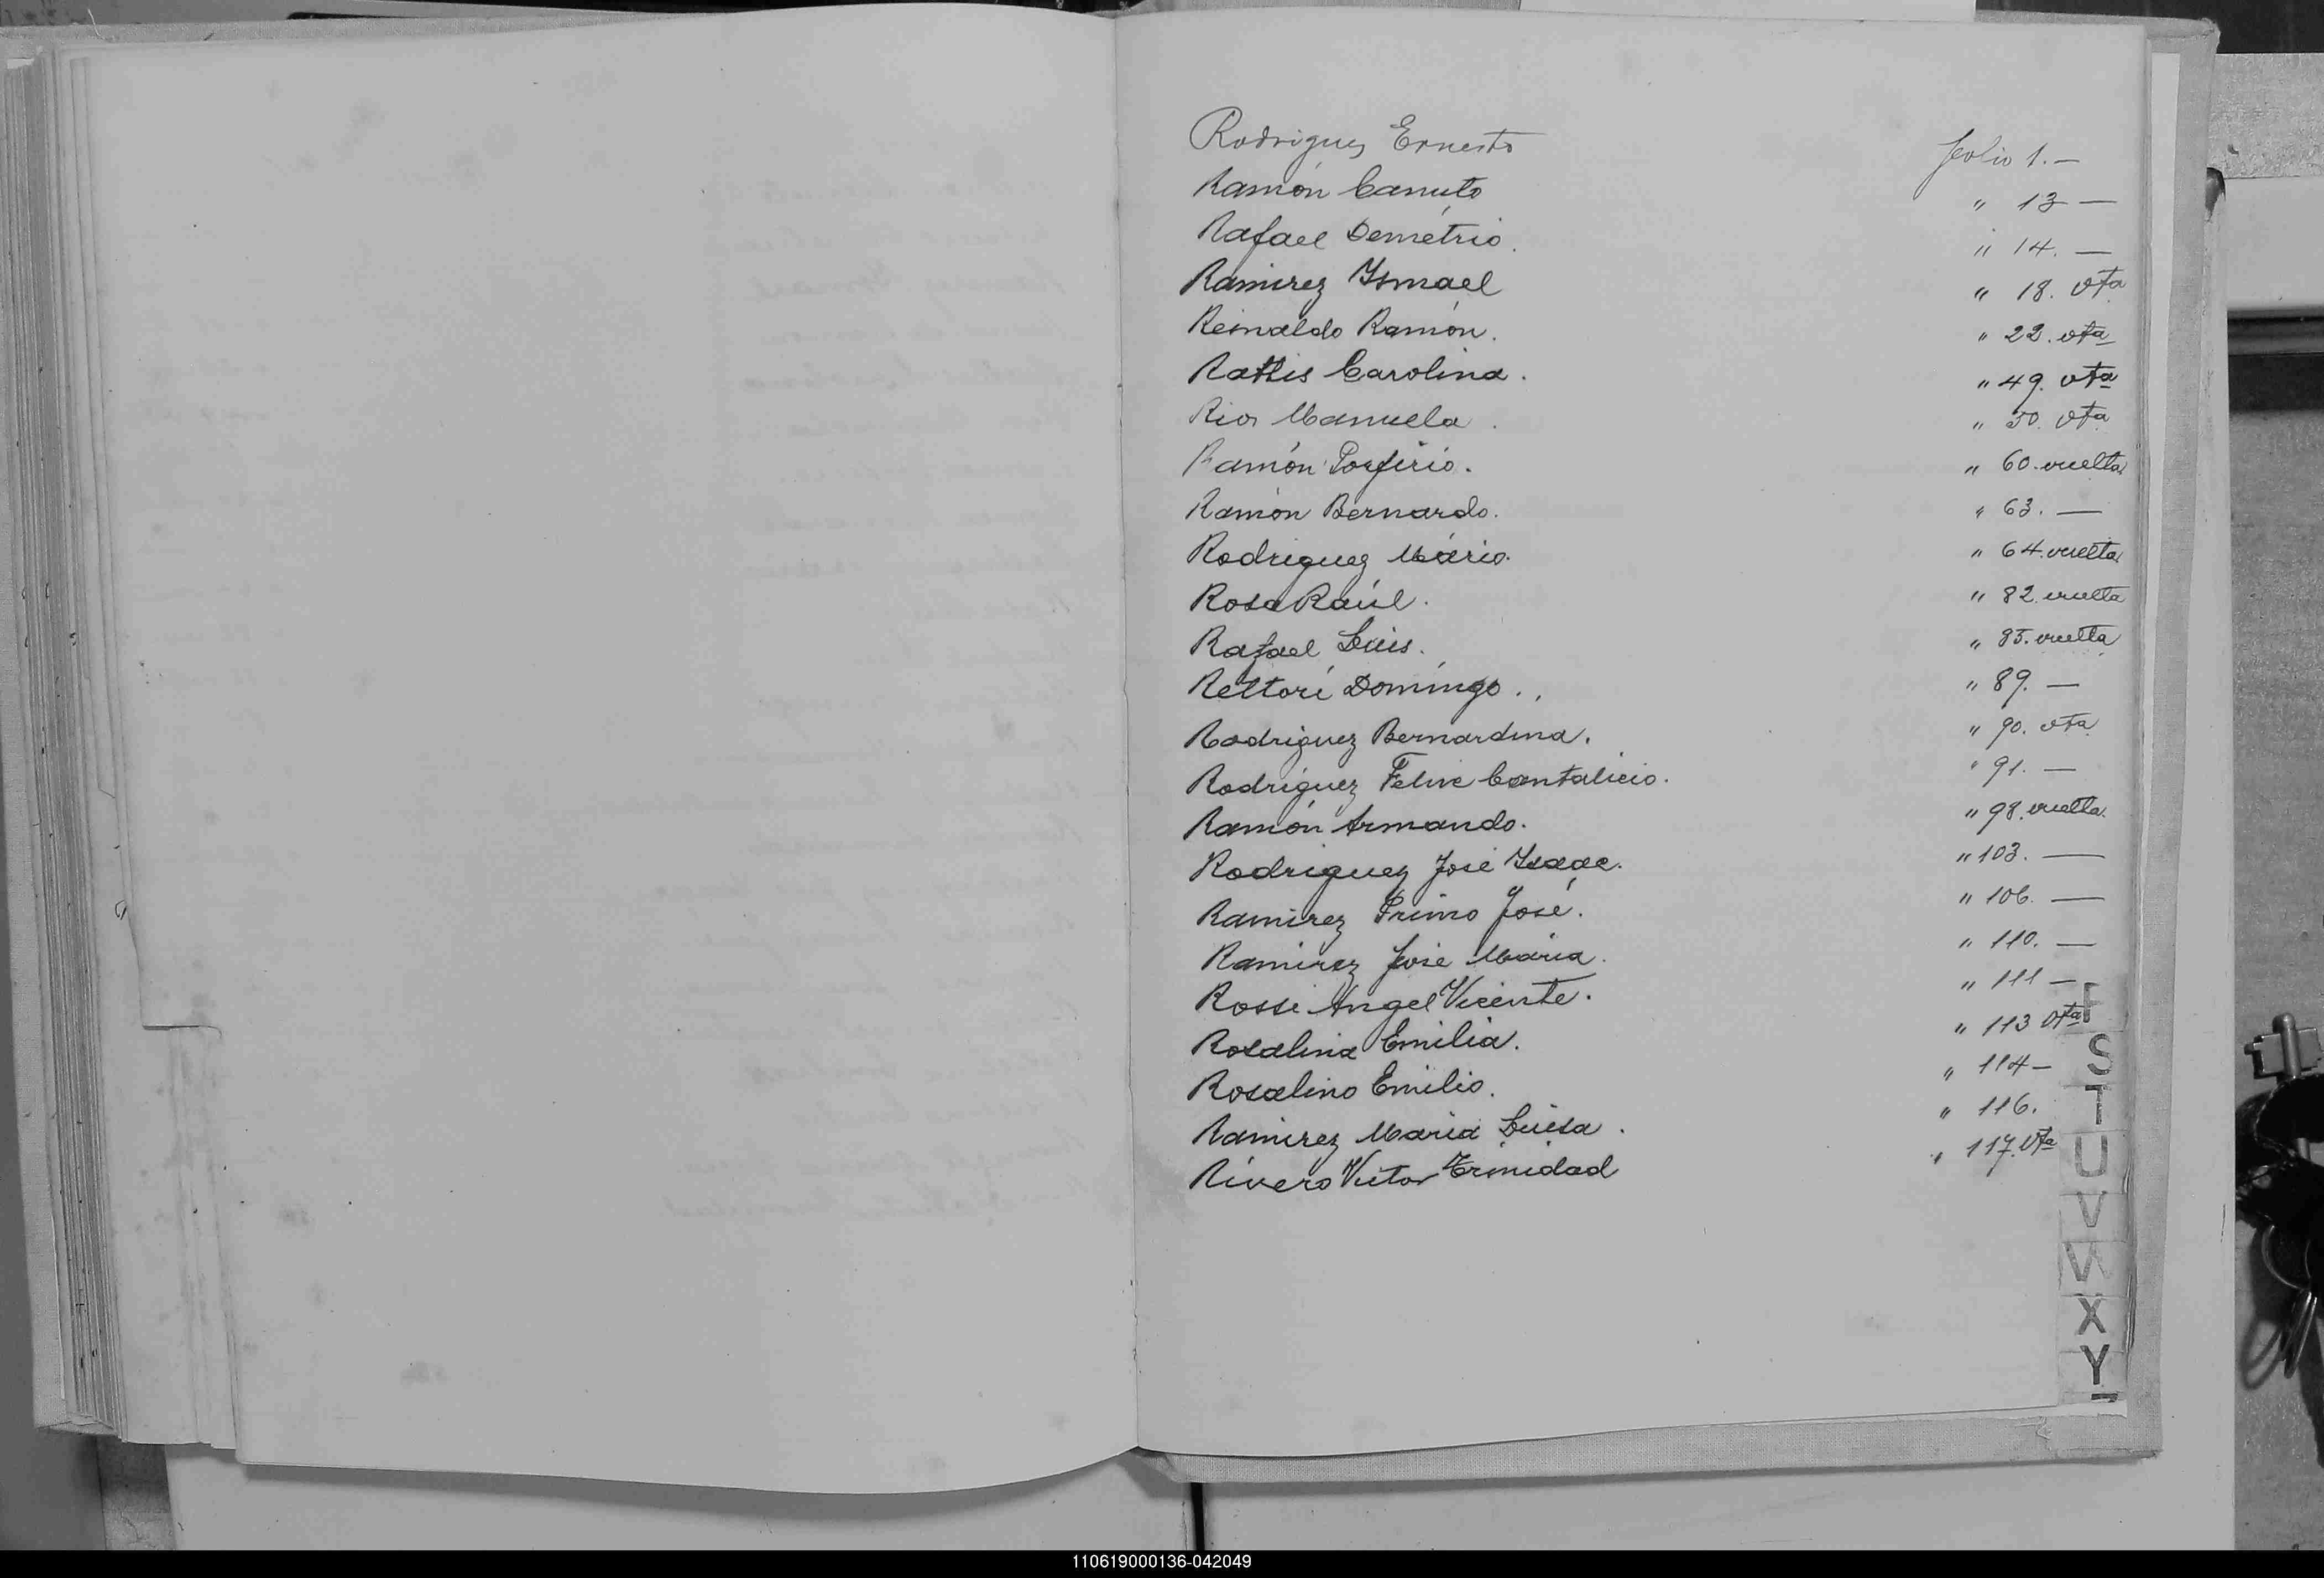 Rodriguez Ernesto folio 1.—
Ramón Canuto " 13 —
Rafael Demétrio. " 14. —
Ramirez Ismael " 18. vta
Reinaldo Ramón. " 22. vta
Rattis Carolina. " 49. vta
Rios Manuela. " 50. vta
Ramón Porfirio. " 60. vuelta
Ramón Bernardo. " 63. —
Rodriguez Mário. " 64. vuelta
Rosa Raúl. " 82. vuelta
Rafael Luis. " 85. vuelta
Rettori Domingo. " 89. —
Rodriguez Bernardina. " 90. vta
Rodriguez Felix Cantalicio. " 91. —
Ramón Armando. " 98. vuelta.
Rodriguez José Isaac. " 103. —
Ramirez Primo José. " 106. —
Ramirez José Maria. " 110. —
Rossi Angel Vicente. " 111 —
Rosalina Emilia. " 113 vta
Rosalino Emilio. " 114 —
Ramirez Maria Luisa. " 116.
Rivero Victor Trinidad " 117. vta
S
T
U
V
W
X
Y
110619000136-042049